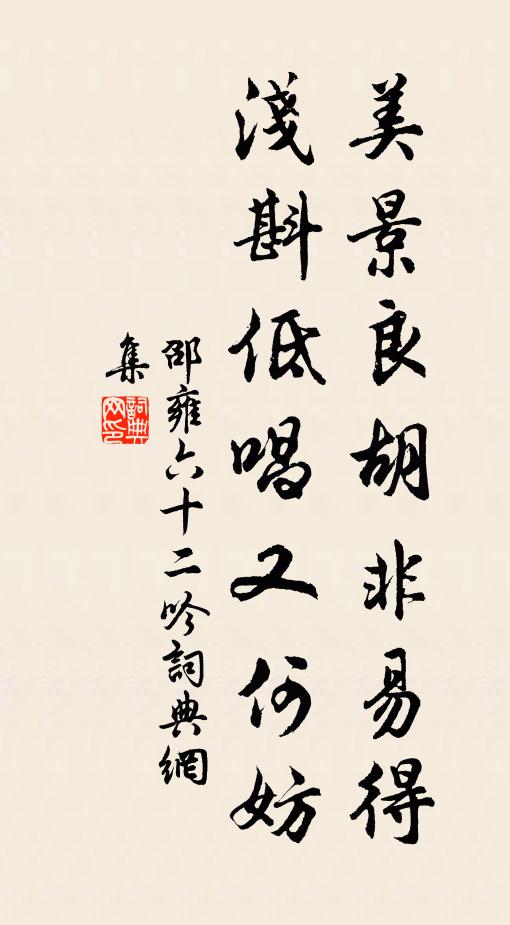 美景良胡非易得
淺斟低唱又何妨
邵雍六十二吟詞典網
集
詞典
网印